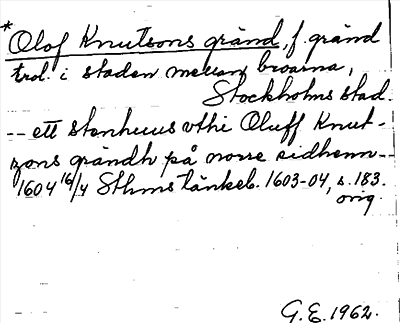 * Olof Knutsons gränd, f. gränd
trol. i staden mellan broarna,
Stockholms stad.
-- ett stenhuus vthi Oluff Knut-
zons grändh på norre sidhenn --
1604 16/4 Sthms tänkeb. 1603-04, s. 183.
orig.
G.E. 1962.